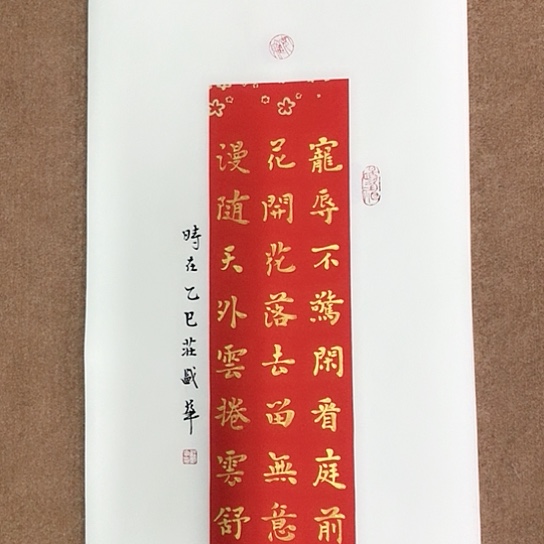 寵辱不驚閑看庭前
花開花落去留無意
漫随天外雲捲雲舒
時在乙巳莊盛華